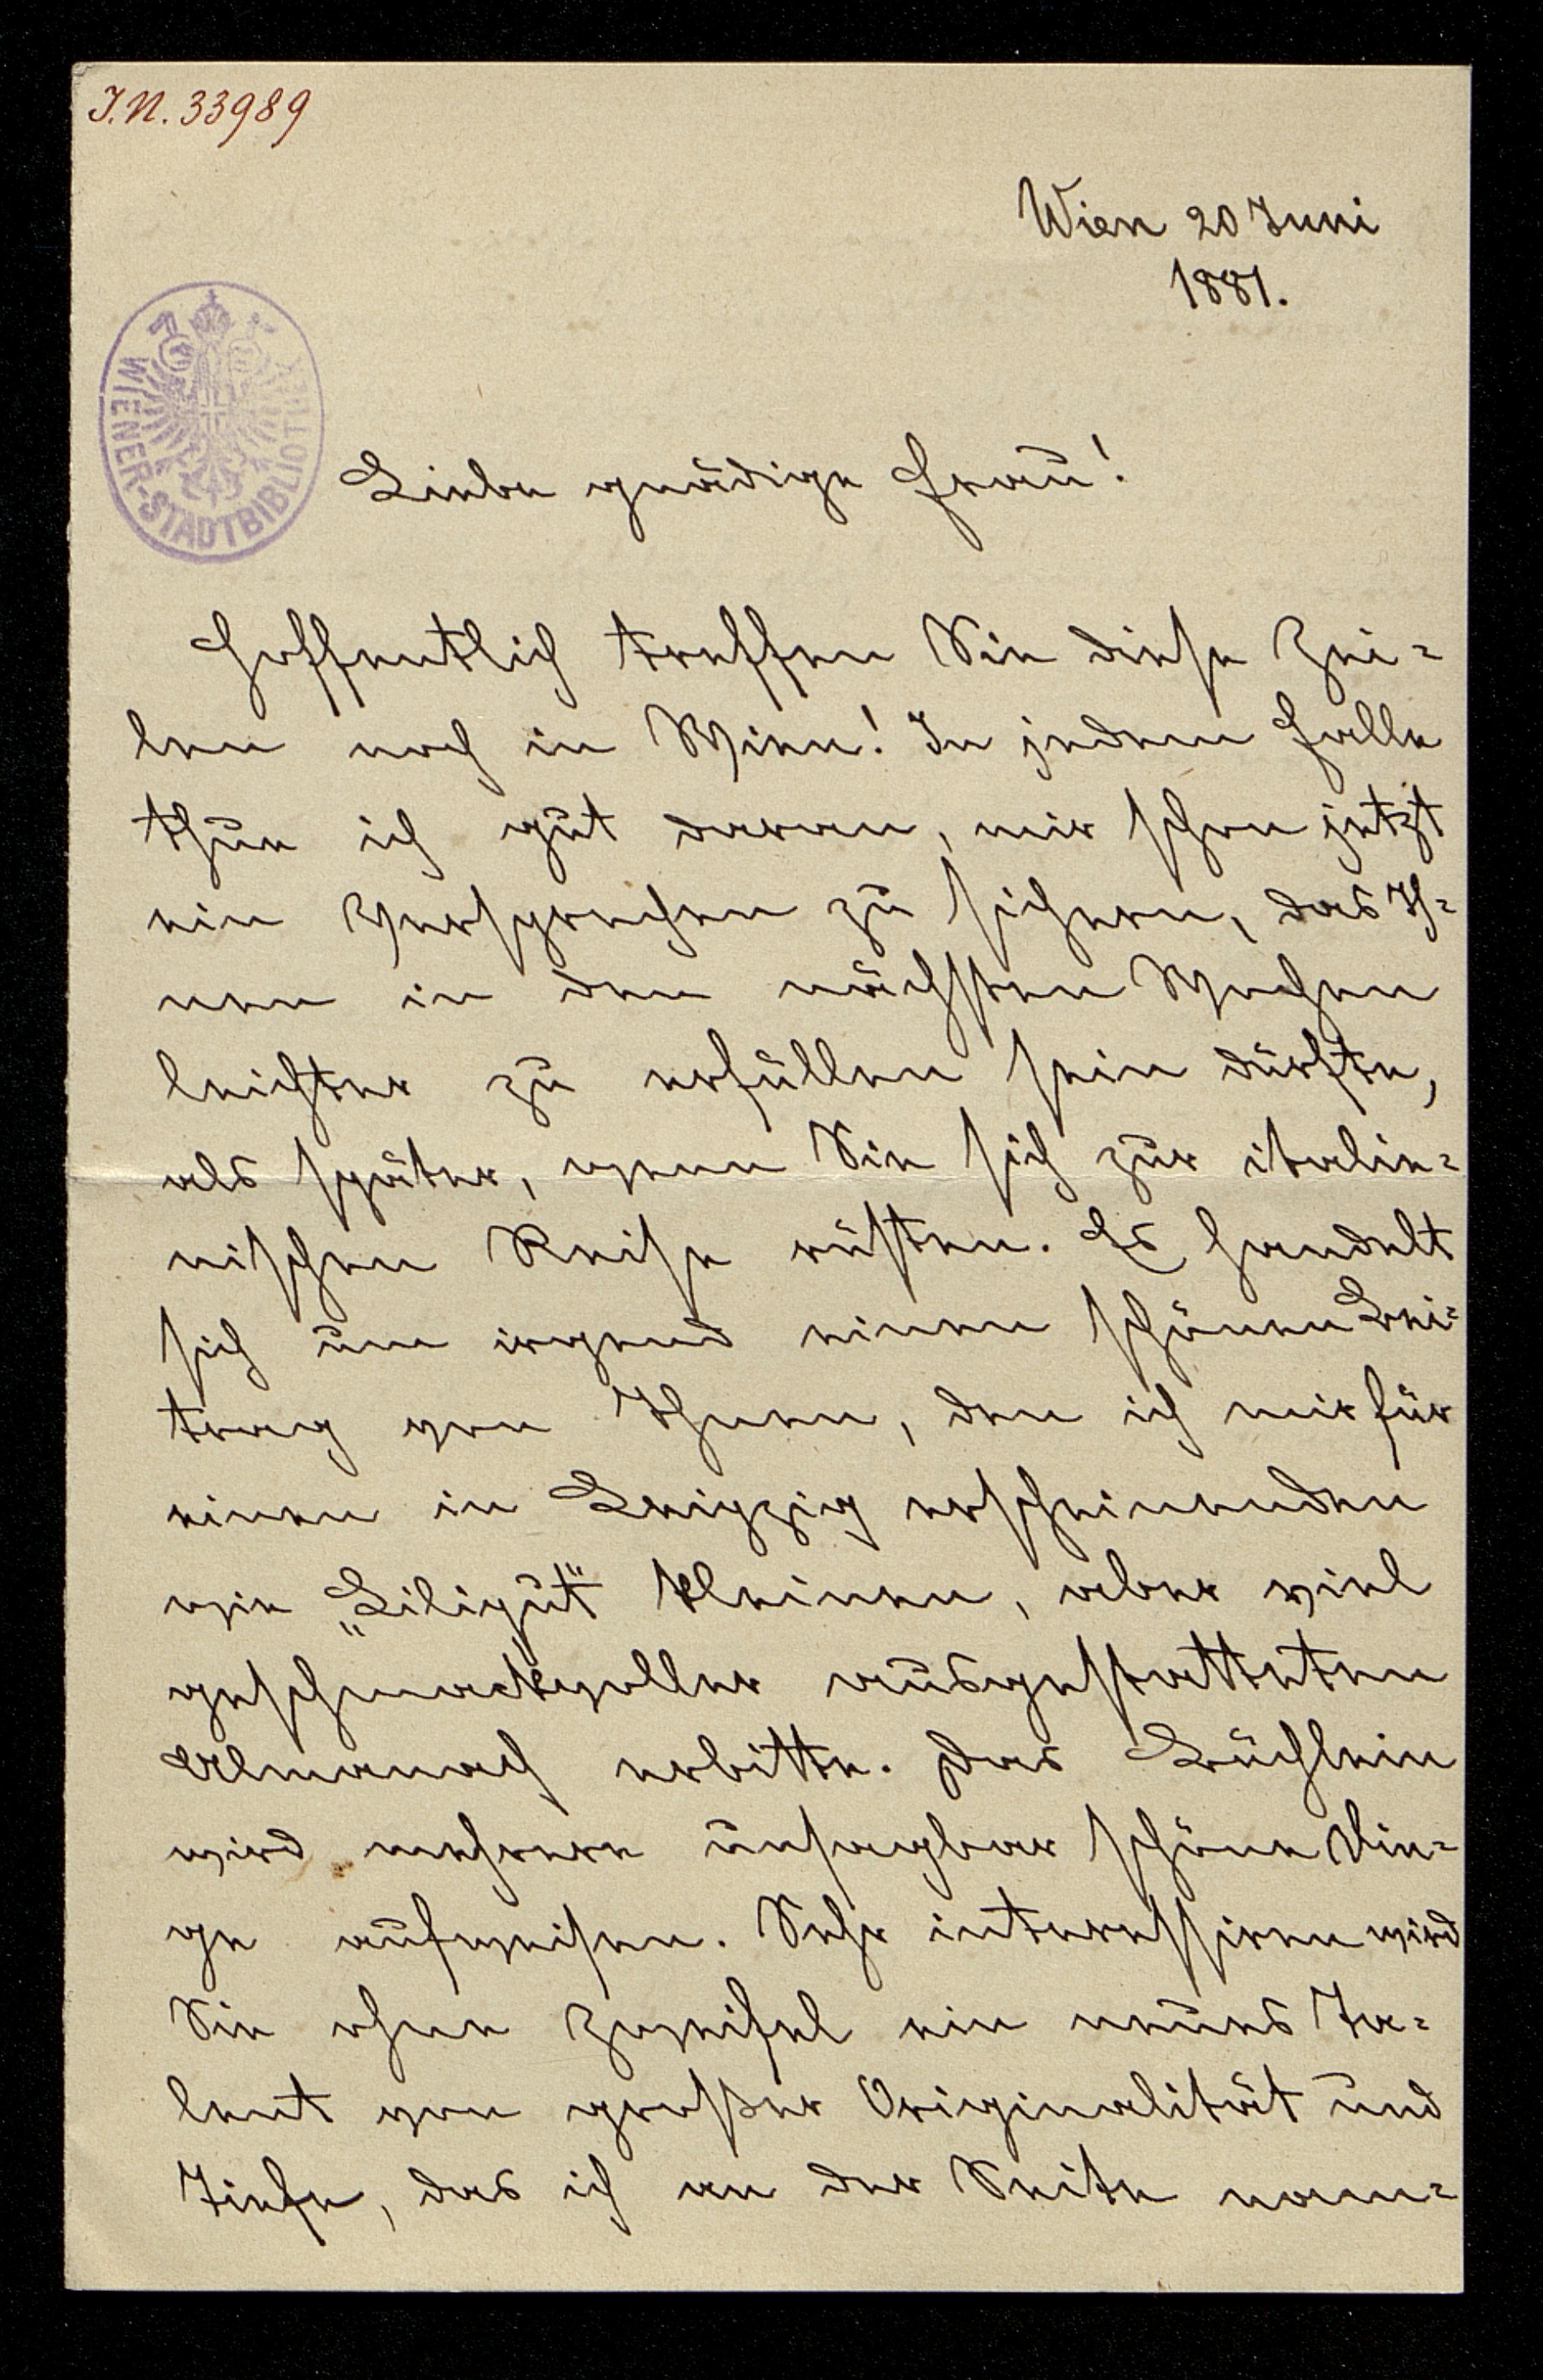 I.N. 33989
Wien 20 Juni
1881.
WIENER-STADTBIBLIOTHEK
Liebe gnädige Frau!
Hoffentlich treffen Sie diese Zei=
len noch in Wien! In jedem Falle
thue ich gut daran, mir schon jetzt
ein Versprechen zu sichern, das Ih=
nen in den nächsten Wochen
leichter zu erfüllen sein dürfte,
als später, wenn Sie sich zur italie=
nischen Reise rüsten. Es handelt
sich um irgend einen schönen Bei=
trag von Ihnen, den ich mir für
einen in Leipzig erscheinenden
wie „Liliput" kleinen, aber viel
geschmackvoller ausgestatteten
Almanach erbitte. Das Büchlein
wird mehrere unsagbar schöne Din=
ge aufweisen. Sehr interessiren wird
Sie ohne Zweifel ein neues Ta=
lent von großer Originalität und
Tiefe, das ich an der Seite nam=